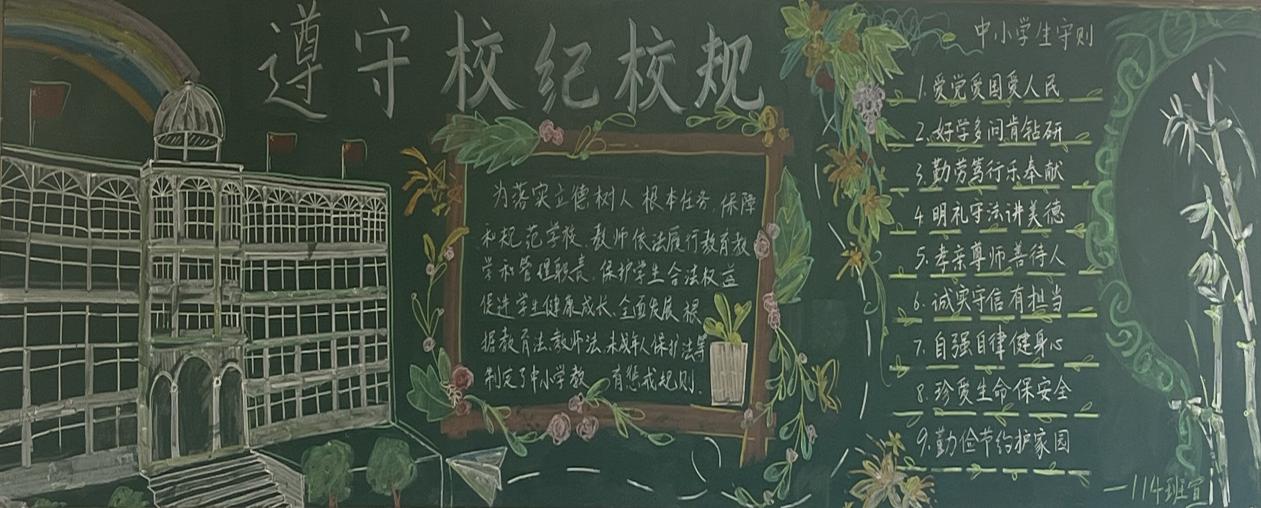 遵守校纪校规
为落实立德树人根本任务,保障
和规范学校、教师依法履行教育教
学和管理职责,保护学生合法权益
促进学生健康成长、全面发展,根
据教育法、教师法、未成年人保护法等
制定了中小学教 有惩戒规则.
中小学生守则
1.爱党爱国爱人民
2.好学多问肯钻研
3.勤劳笃行乐奉献
4.明礼守法讲美德
5.孝亲尊师善待人
6.诚实守信有担当
7.自强自律健身心
8.珍爱生命保安全
9.勤俭节约护家园
一114班宣